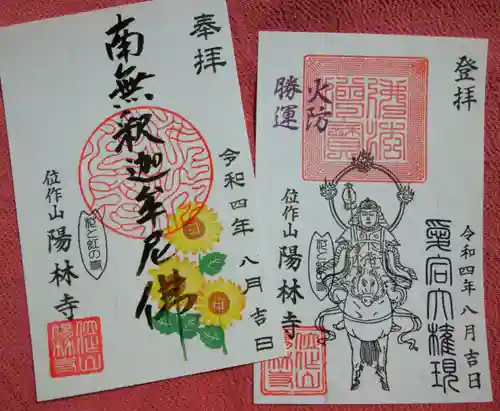 奉拝
南無釈迦牟尼佛
令和四年 八月吉日
位作山 陽林寺
登拝
火防
勝運
愛宕大権現
令和四年八月吉日
位作山 陽林寺